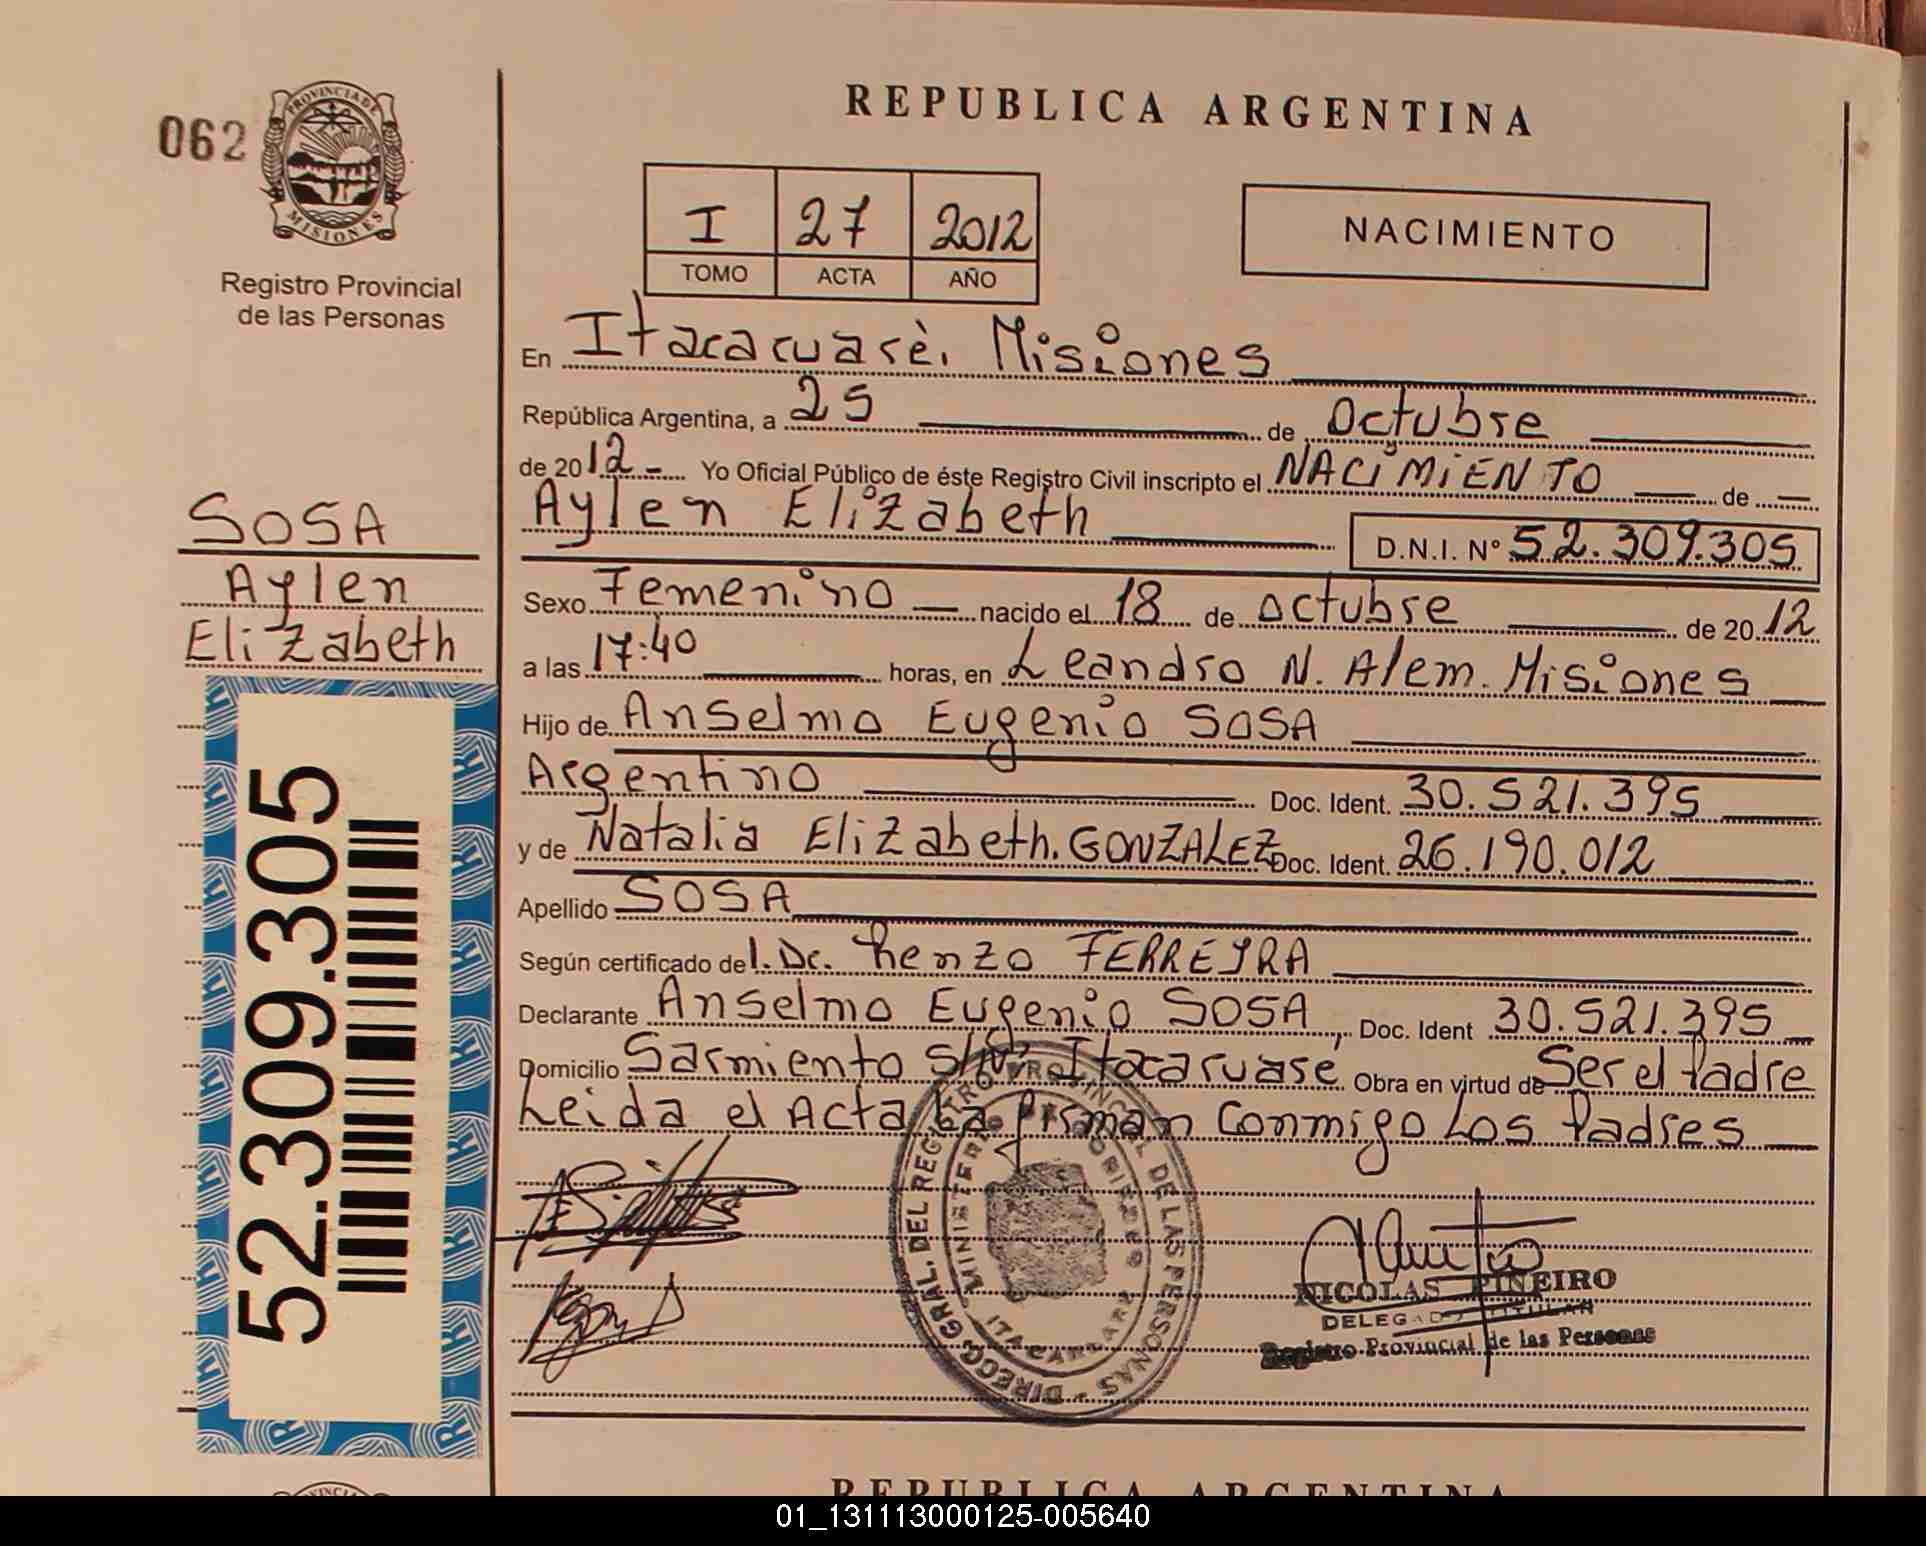 062
PROVINCIA DE
MISIONES
Registro Provincial
de las Personas
SOSA
Aylen
Elizabeth
52.309.305
REPUBLICA ARGENTINA
I 27 2012
TOMO ACTA AÑO
NACIMIENTO
En Itacaruarè. Misiones
República Argentina, a 25 de Octubre
de 2012 - Yo Oficial Público de éste Registro Civil inscripto el NACIMIENTO de
Aylen Elizabeth D.N.I. N° 52.309.305
Sexo Femenino nacido el 18 de octubre de 2012
a las 17:40 horas, en Leandro N. Alem. Misiones
Hijo de Anselmo Eugenio SOSA
Argentino Doc. Ident. 30.521.395
y de Natalia Elizabeth. GONZALEZ Doc. Ident. 26.190.012
Apellido SOSA
Según certificado del. Dr. Renzo FERREYRA
Declarante Anselmo Eugenio SOSA, Doc. Ident 30.521.395
Domicilio Sarmiento S/Nº Itacaruaré Obra en virtud de Ser el Padre
Leida el Acta La firman Conmigo Los Padres
DIRECC. GRAL. DEL REGISTRO PROVINCIAL DE LAS PERSONAS
MINISTERIO DE GOBIERNO
NICOLAS PIÑEIRO
DELEGADO TITULAR
Registro Provincial de las Personas
REPUBLICA ARGENTINA
01_131113000125-005640